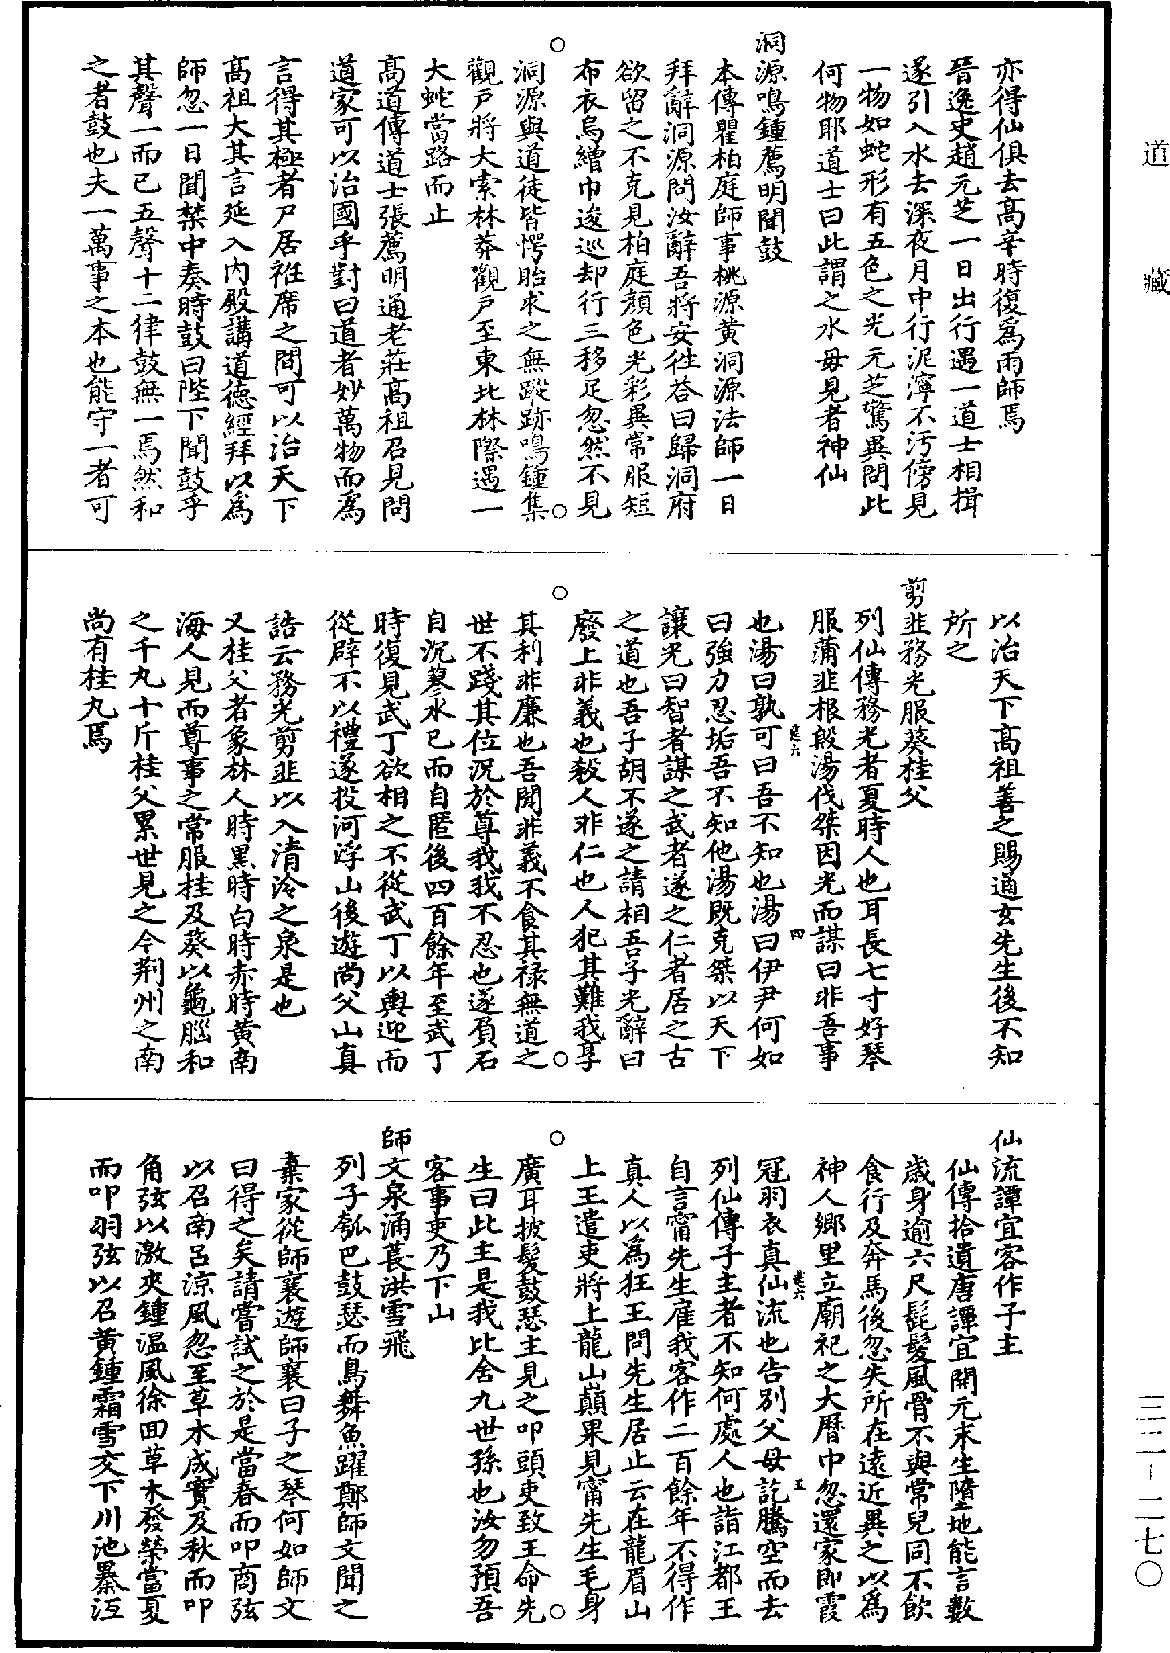 道藏
亦得仙俱去高辛時復為雨師焉
晉逸史趙元芝一日出行遇一道士相揖
遂引入水去深夜月中行泥濘不污傍見
一物如蛇形有五色之光元芝驚異問此
何物耶道士曰此謂之水母見者神仙
洞源鳴鍾薦明聞鼓
本傳瞿柏庭師事桃源黃洞源法師一日
拜辭洞源問汝辭吾將安往答曰歸洞府
欲留之不克見柏庭顏色光彩異常服短
布衣烏繒巾逡巡却行三移足忽然不見
洞源與道徒皆愕眙求之無蹤跡鳴鍾集
觀戶將大索林莽觀戶至東北林際遇一
大蛇當路而止
高道傳道士張薦明通老莊高祖召見問
道家可以治國乎對曰道者妙萬物而為
言得其極者尸居袵席之間可以治天下
高祖大其言延入內殿講道德經拜以為
師忽一日聞禁中奏時鼓曰陛下聞鼓乎
其聲一而已五聲十二律鼓無一焉然和
之者鼓也夫一萬事之本也能守一者可
以治天下高祖善之賜通玄先生後不知
所之
剪韭務光服葵桂父
列仙傳務光者夏時人也耳長七寸好琴
服蒲韭根殷湯伐桀因光而謀曰非吾事
也湯曰孰可曰吾不知也湯曰伊尹何如
曰強力忍垢吾不知他湯既克桀以天下
讓光曰智者謀之武者遂之仁者居之古
之道也吾子胡不遂之請相吾子光辭曰
廢上非義也殺人非仁也人犯其難我享
其利非廉也吾聞非義不食其祿無道之
世不踐其位況於尊我我不忍也遂負石
自沉蓼水已而自匿後四百餘年至武丁
時復見武丁欲相之不從武丁以輿迎而
從辟不以禮遂投河浮山後遊尚父山真
誥云務光剪韭以入清泠之泉是也
又桂父者象林人時黑時白時赤時黃南
海人見而尊事之常服桂及葵以龜腦和
之千丸十斤桂父累世見之今荆州之南
尚有桂丸焉
仙流譚宜客作子主
仙傳拾遺唐譚宜開元末生墮地能言數
歲身逾六尺髭鬢風骨不與常兒同不飲
食行及奔馬後忽失所在遠近異之以為
神人鄉里立廟祀之大曆中忽還家即霞
冠羽衣真仙流也告別父母訖騰空而去
列仙傳子主者不知何處人也詣江都王
自言甯先生雇我客作二百餘年不得作
真人以為狂王問先生居止云在龍眉山
上王遣吏將上龍山巔果見甯先生毛身
廣耳披髮鼓瑟主見之叩頭吏致王命先
生曰此主是我比舍九世孫也汝勿預吾
客事吏乃下山
師文泉涌萇洪雪飛
列子瓠巴鼓瑟而鳥舞魚躍鄭師文聞之
棄家從師襄遊師襄曰子之琴何如師文
曰得之矣請嘗試之於是當春而叩商弦
以召南呂涼風忽至草木成實及秋而叩
角弦以激夾鍾溫風徐回草木發榮當夏
而叩羽弦以召黃鍾霜雪交下川池暴沍
卷六
四
卷六
五
三二－二七〇